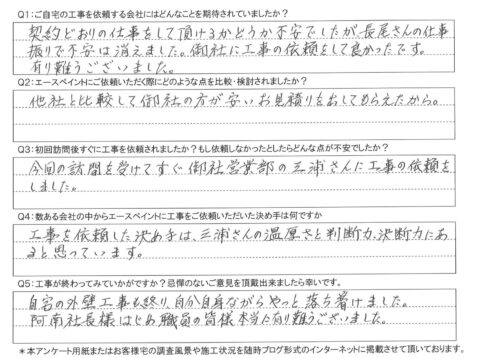 Q1：ご自宅の工事を依頼する会社にはどんなことを期待されていましたか？
契約どおりの仕事をして頂けるかどうか不安でしたが長尾さんの仕事
振りで不安は消えました。御社に工事の依頼をして良かったです。
有り難うございました。
Q2：エースペイントにご依頼いただく際にどのような点を比較・検討されましたか？
他社と比較して御社の方が安いお見積りを出してもらえたから。
Q3：初回訪問後すぐに工事を依頼されましたか？もし依頼しなかったとしたらどんな点が不安でしたか？
今回の訪問を受けてすぐ御社営業部の三浦さんに工事の依頼を
しました。
Q4：数ある会社の中からエースペイントに工事をご依頼いただいた決め手は何ですか
工事を依頼した決め手は、三浦さんの温厚さと判断力、決断力にあ
ると思っています。
Q5：工事が終わってみていかがですか？忌憚のないご意見を頂戴出来ましたら幸いです。
自宅の外壁工事も終り、自分自身ながらやっと落ち着けました。
阿南社長様はじめ職員の皆様本当に有り難うございました。
＊本アンケート用紙またはお客様宅の調査風景や施工状況を随時ブログ形式のインターネットに掲載させて頂いております。